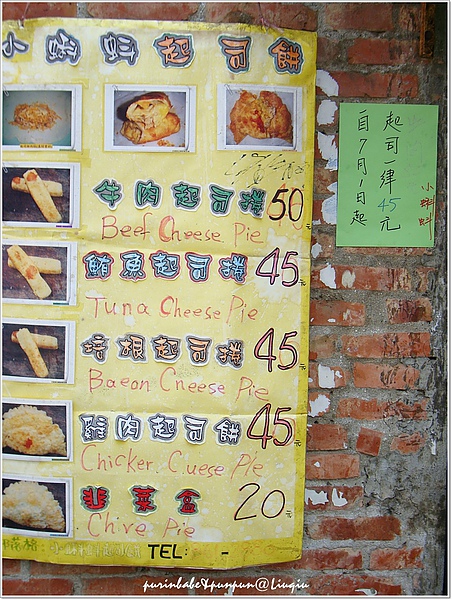 小蝌蚪起司餅
牛肉起司捲 50元
Beef Cheese Pie
鮪魚起司捲 45元
Tuna Cheese Pie
培根起司捲 45元
Baeon Cneese Pie
雞肉起司餅 45元
Chicker Cuese Pie
韭菜盒 20元
Chive Pie
TEL: -
自7月1日起
起司一律45元
小蝌蚪
purinbabe&punpun@Liuqiu